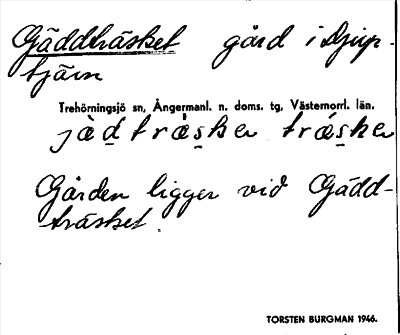 Gäddträsket gård i Djup-
tjärn
Trehörningsjö sn, Ångermanl. n. doms. tg, Västernorrl. län.
träsker
Gården ligger vid Gädd-
träsket.
TORSTEN BURGMAN 1946.